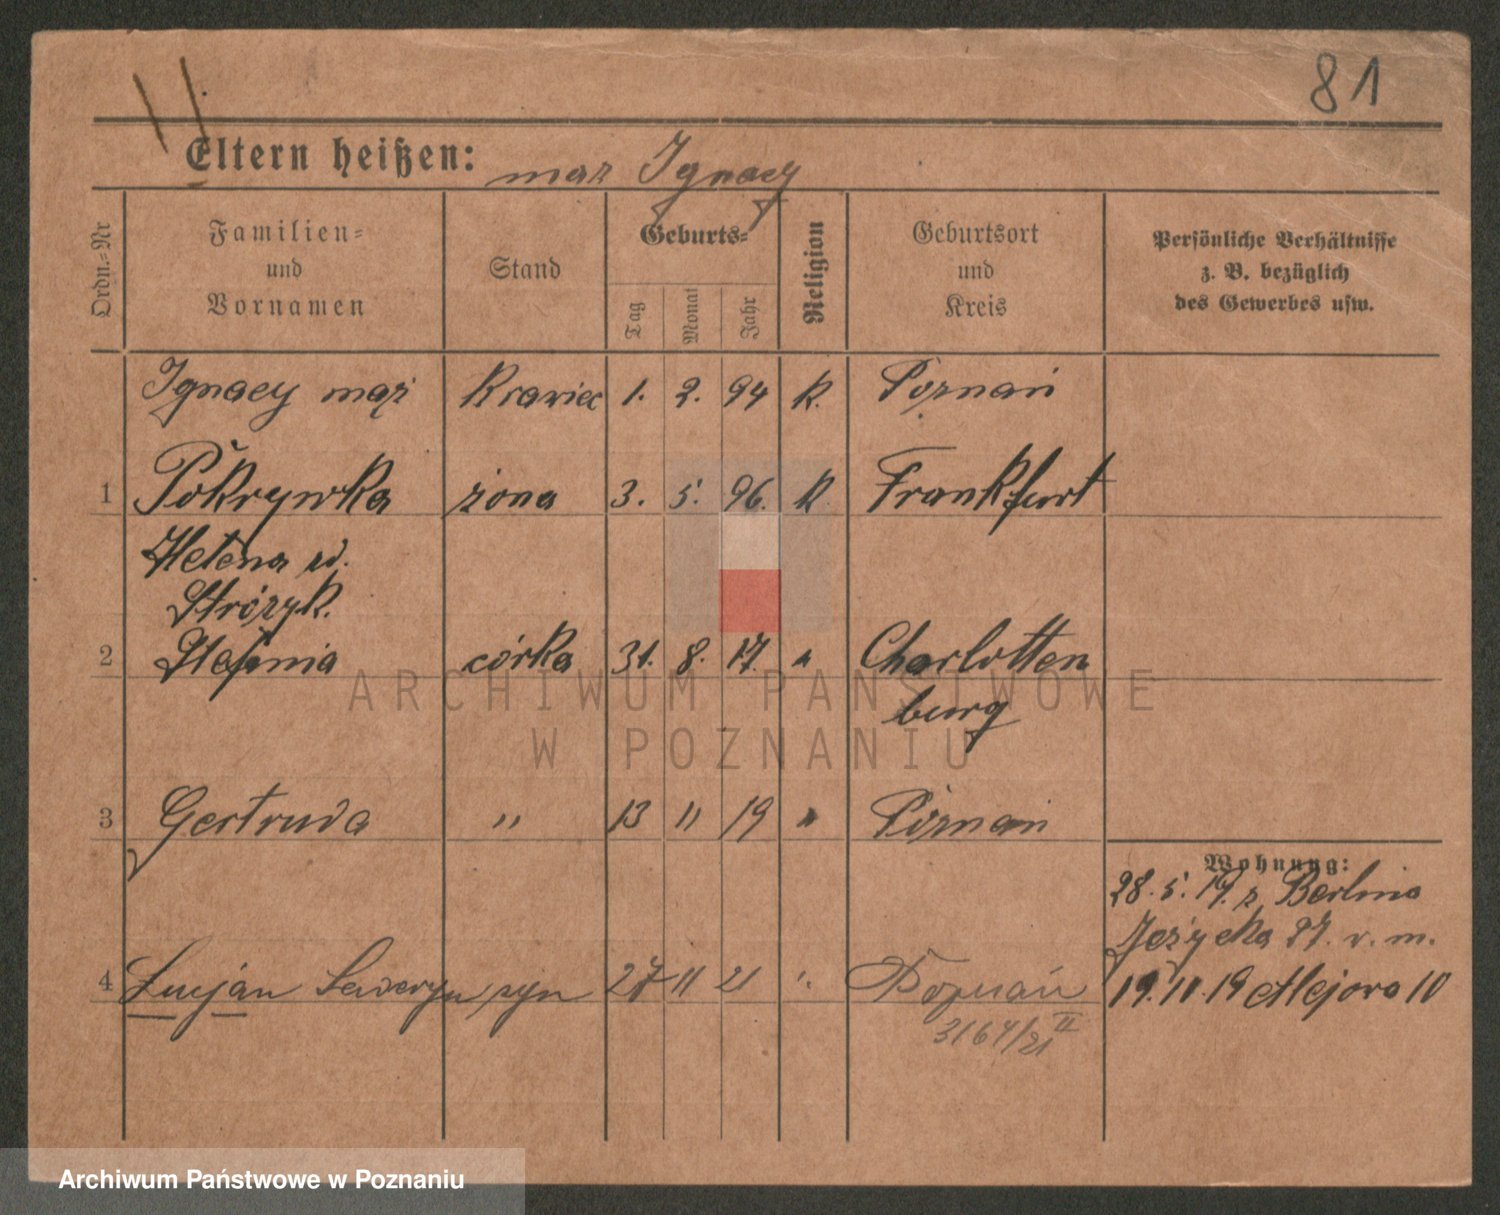 81
Eltern heißen: mąż Ignacy
Ordn.=Nr
Familien=
und
Vornamen
Stand
Geburts=
Tag
Monat
Jahr
Religion
Geburtsort
und
Kreis
Persönliche Verhältnisse
z. B. bezüglich
des Gewerbes usw.
Ignacy mąż Krawiec 1. 2. 94 K. Poznań
1 Pokrywka żona 3. 5. 96. K. Frankfurt
Helena ud.
Stróżyk.
2 Stefania córka 31. 8. 17. " Charlotten
burg
ARCHIWUM PAŃSTWOWE
W POZNANIU
3 Gertruda " 13 11 19 " Poznań
Wohnung:
28. 5. 19. z Berlina
Jeżycka 27. v. m.
4 Lucjan Seweryn syn 27 11 21 " Poznań 19. 11. 19 Mejora 10
3164/21 II
Archiwum Państwowe w Poznaniu